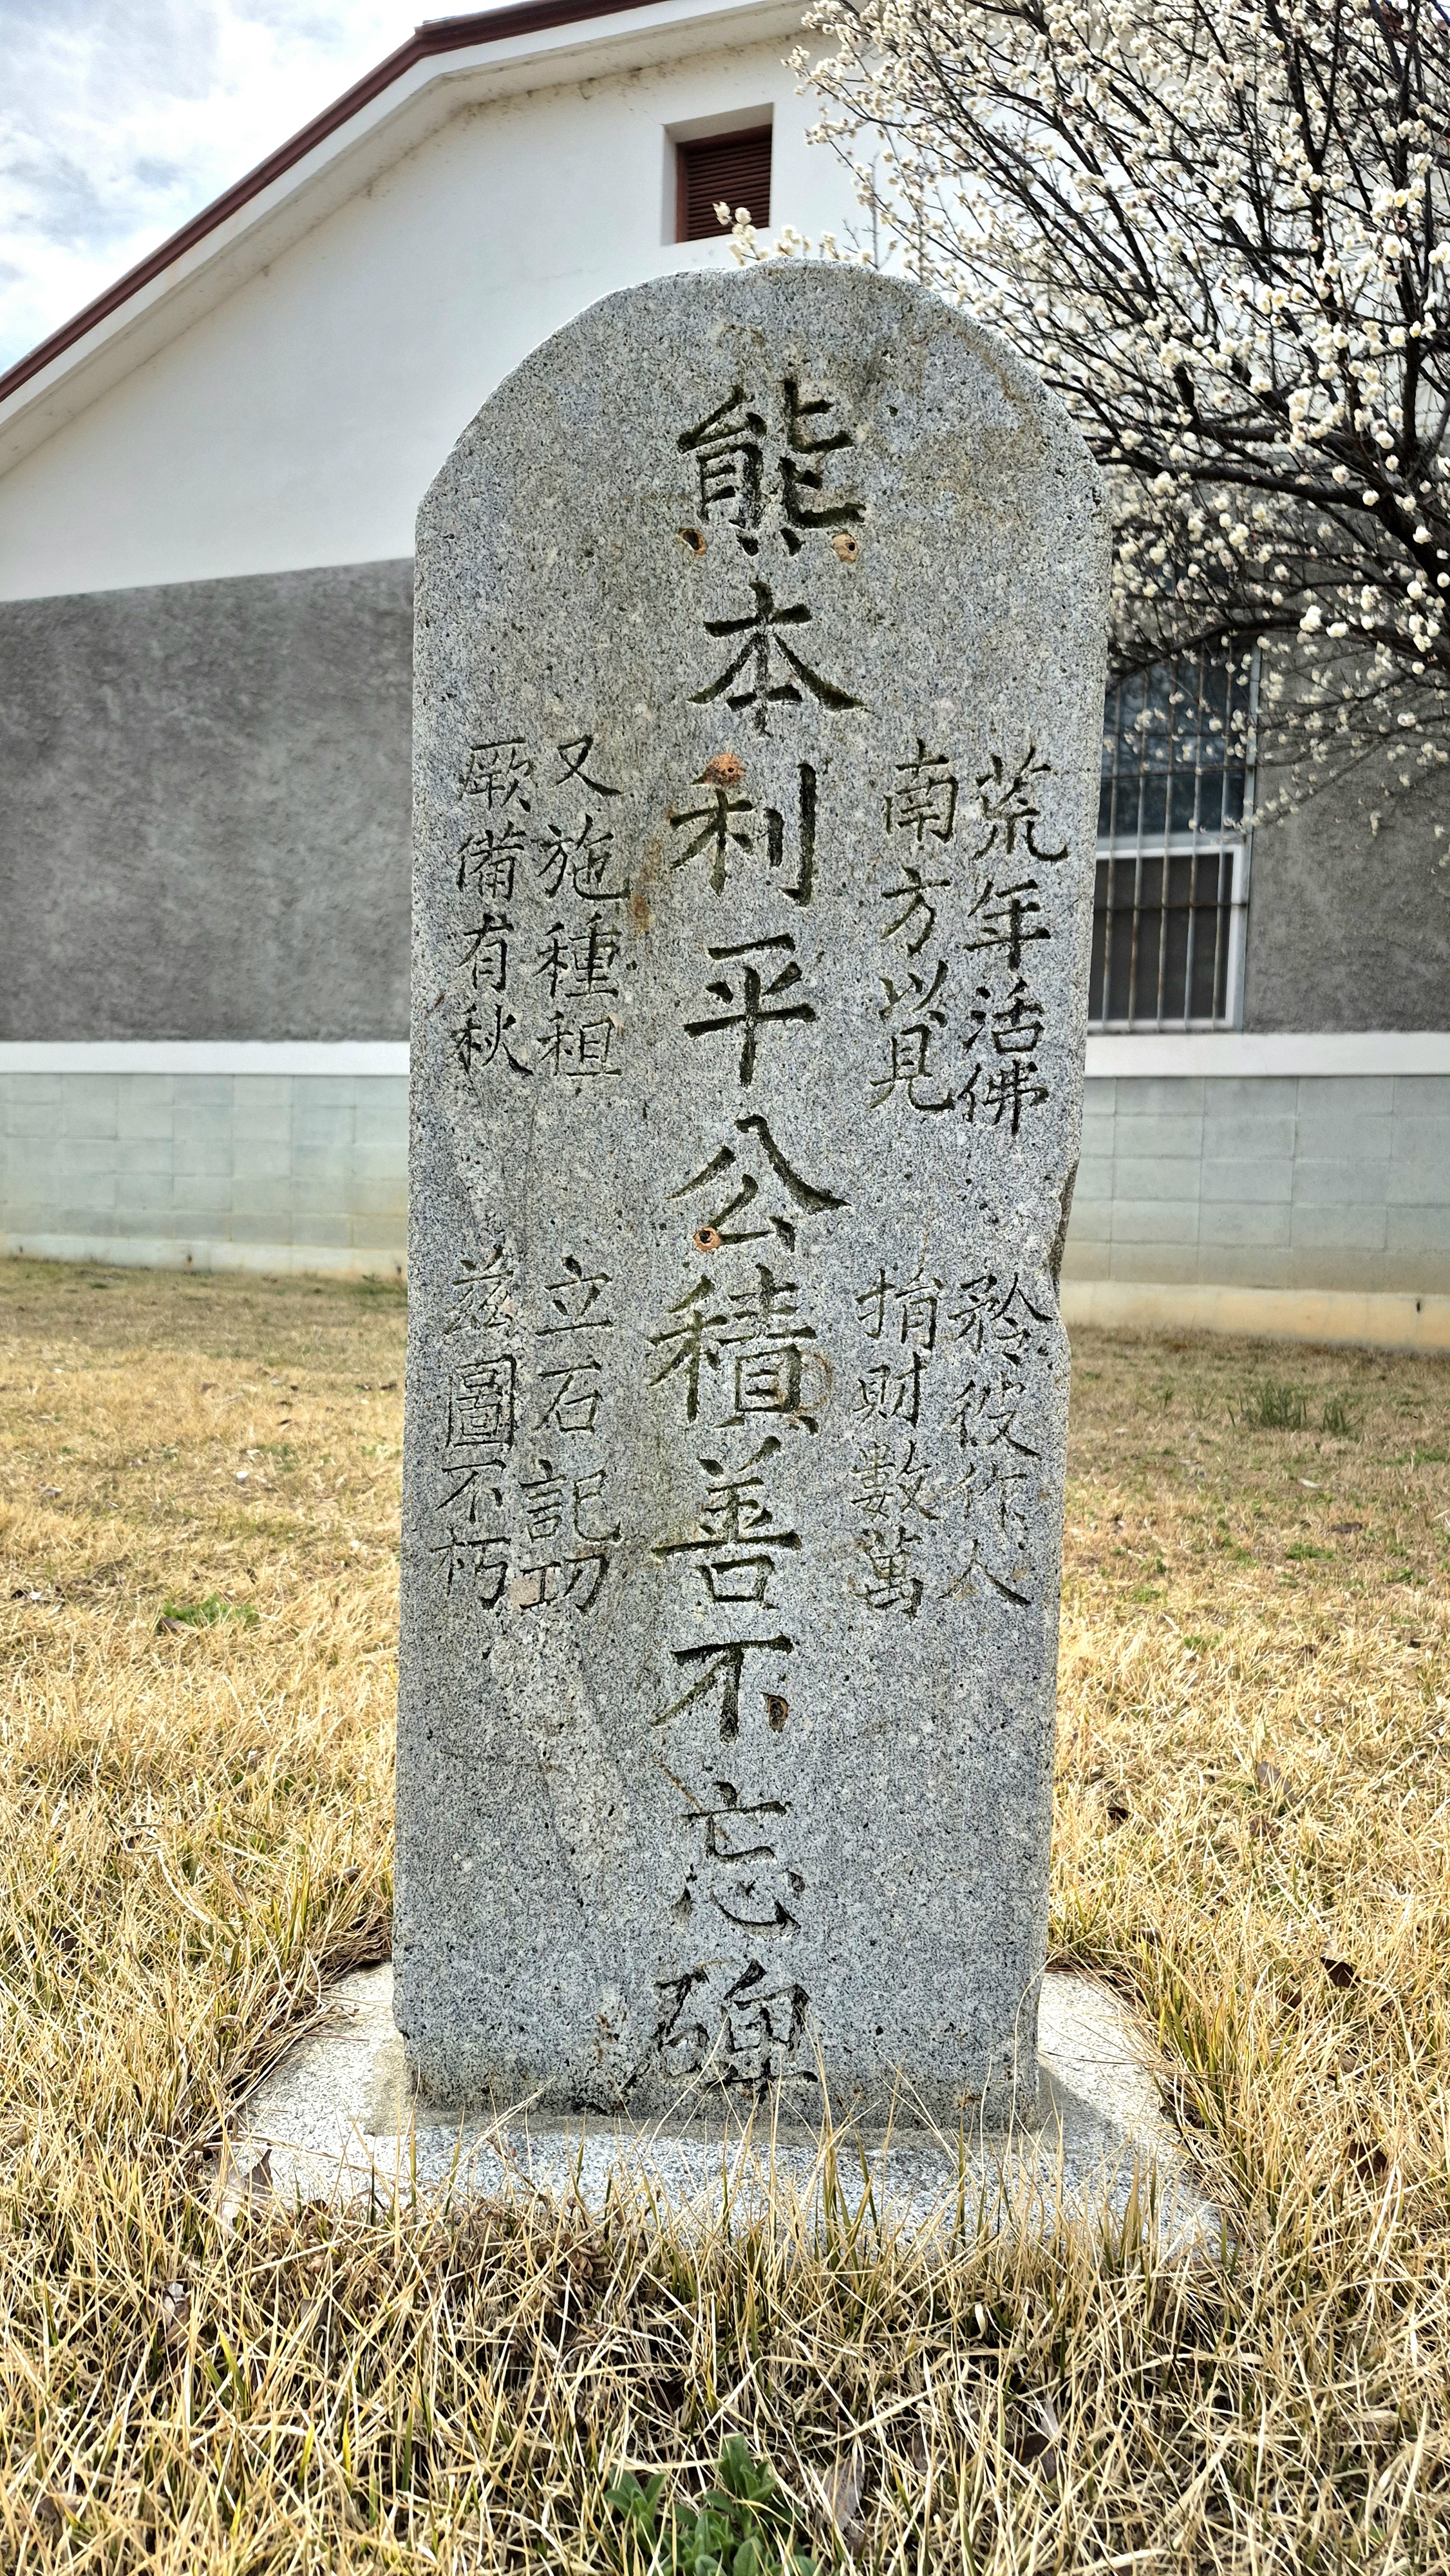 荒年活佛 矜彼作人
南方以見 捐財數萬
熊本利平公積善不忘碑
又施種租 立石記功
厥備有秋 茲圖不朽